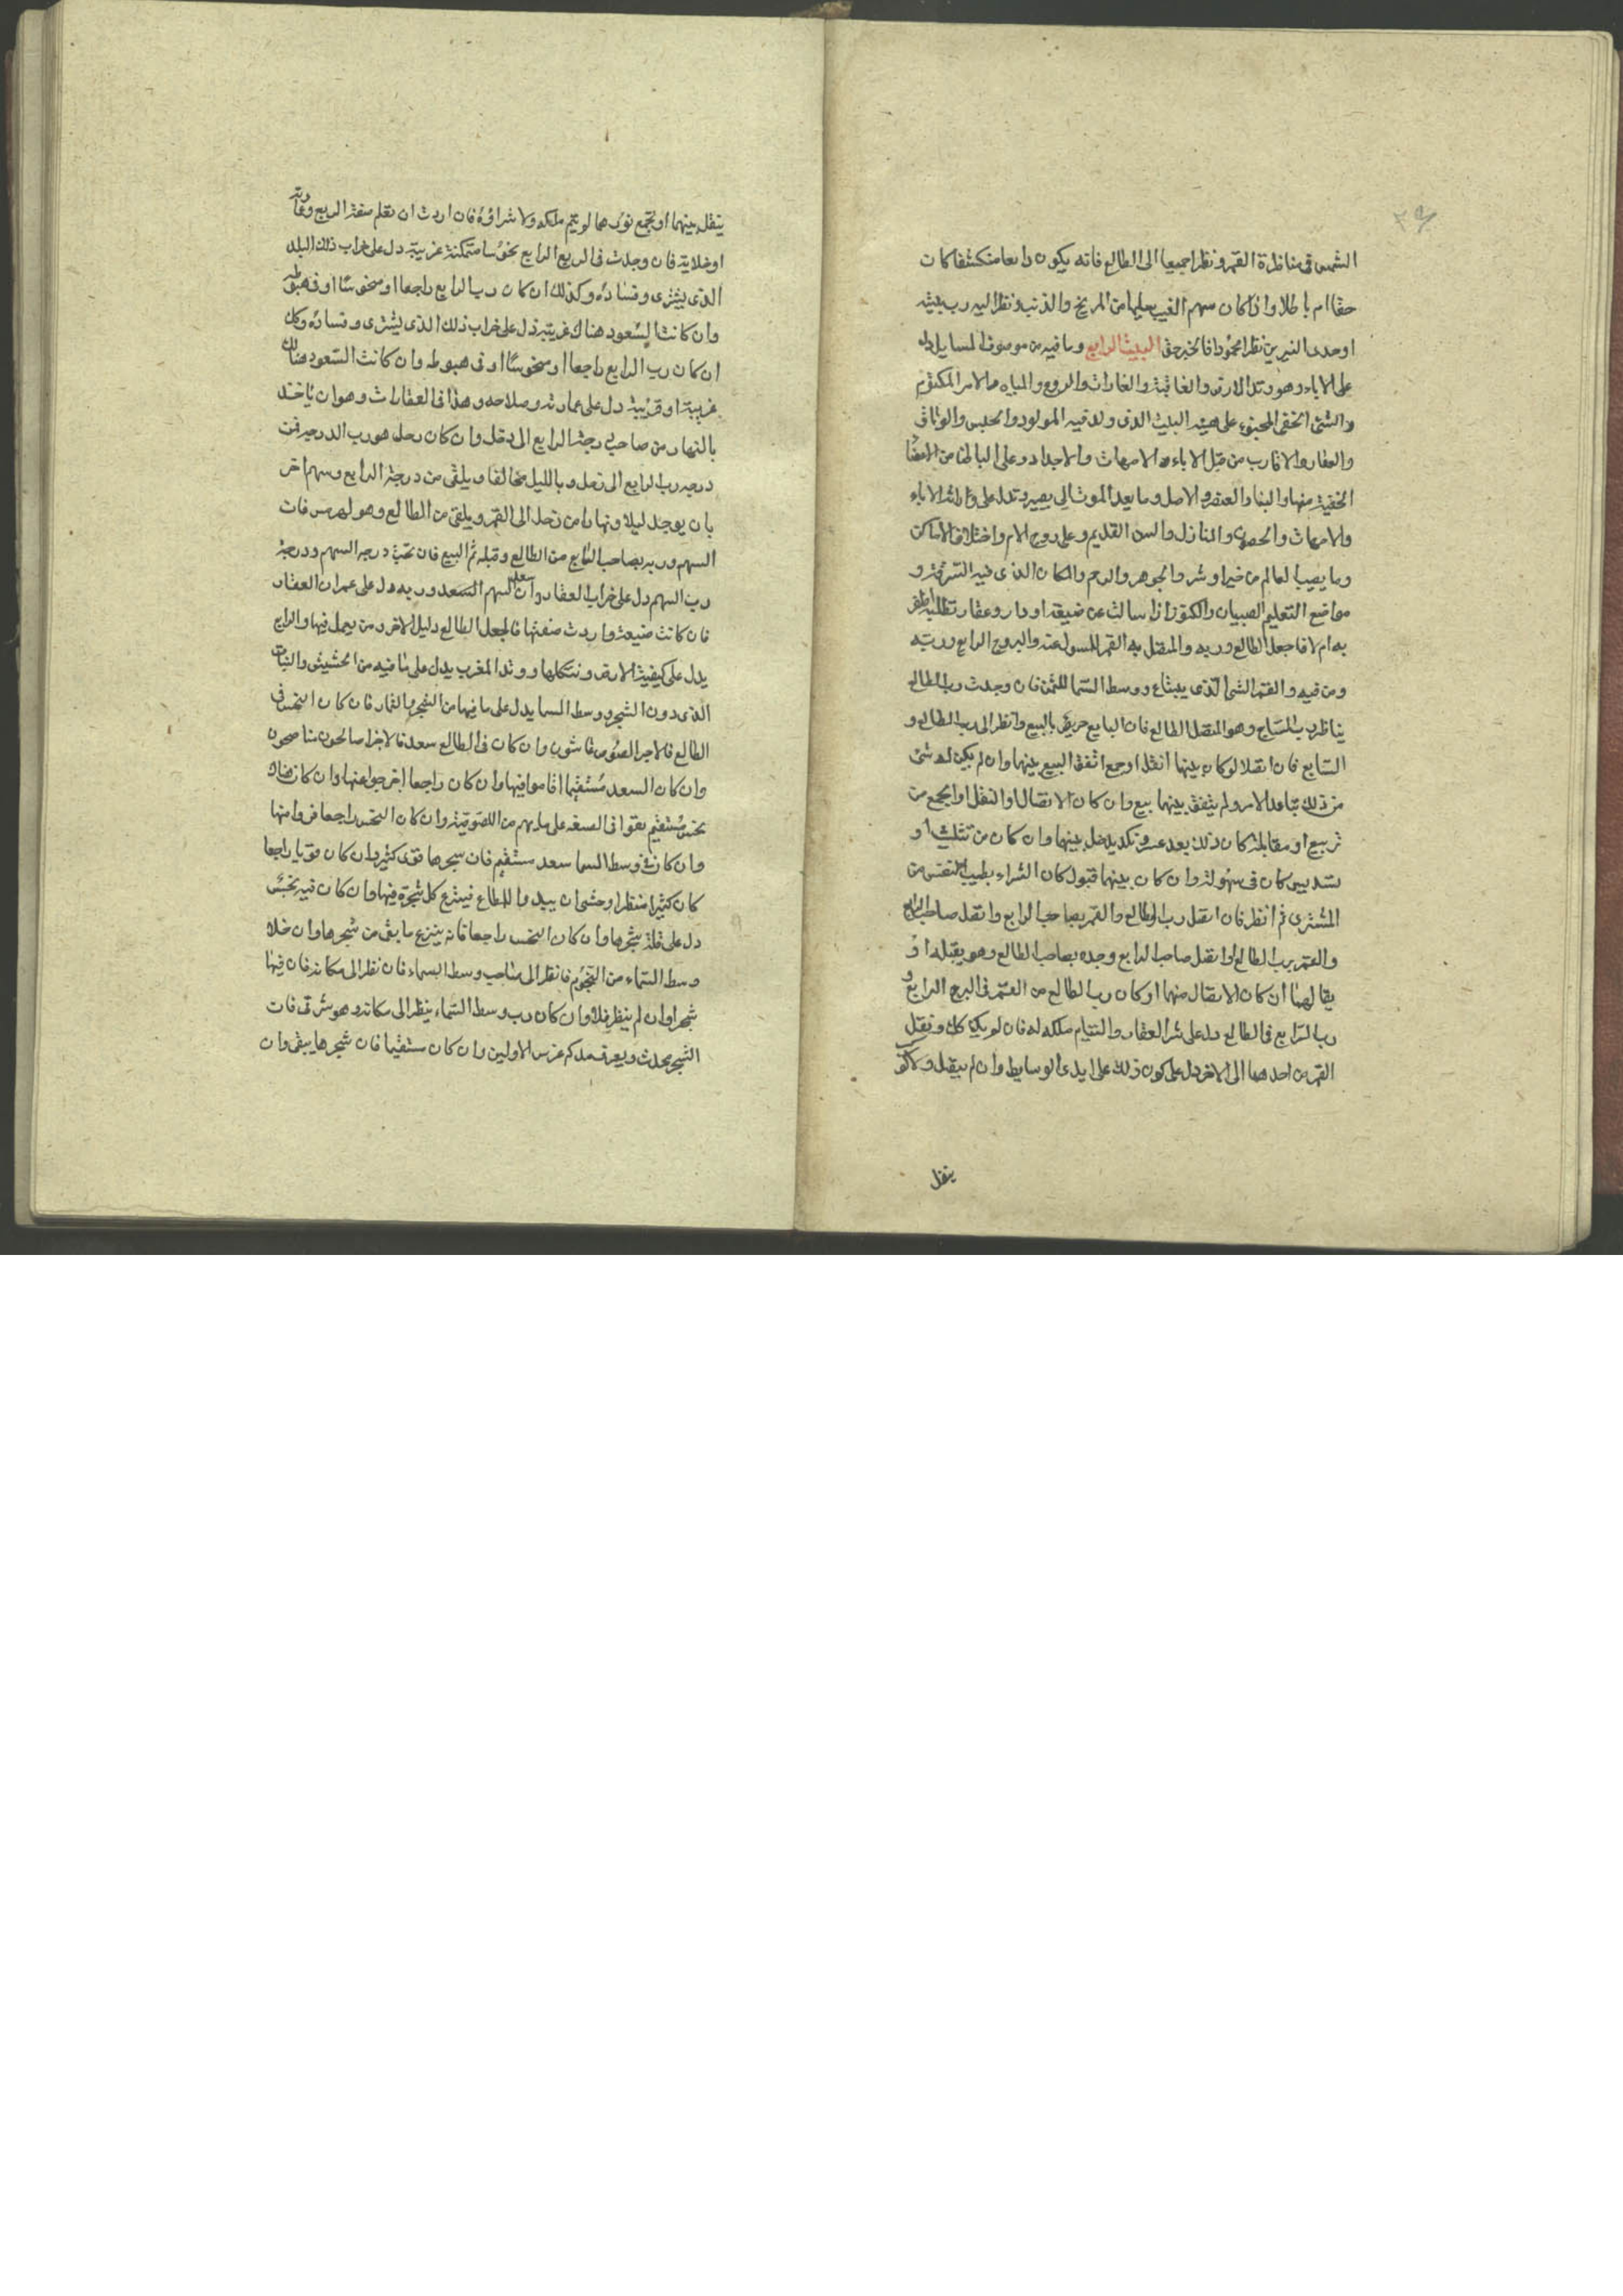 الشمس في مناظرة القمر ونظرا جميعا الى الطالع فانه يكون ذايعا منكشفا كان
حقا ام باطلا واذا كان سهم الغيب عليها من المريخ والذنب ونظر اليه رب بيته
او احد النيرين نظرا محمودا فالخبر حق البيت الرابع وما فيه من موصوف المسايل دل
على الاباء وهو وتد الارض والعاقبة والمياه والامر المكتوم
والشئ الخفي المخبوء على هيئة البيت الذى ولد فيه المولود والحبس والوثاق
والعقار والاقارب من قبل الاباء والامهات والاجداد وعلى
الخفية منها والبناء والعنصر والاصل وما بعد الموت الى يصير وتدل على الاباء
والامهات والحصون والمنازل والسن القديم وعلى روح الام واختلاف الاماكن
وما يصيب العالم من خير او شر والجوهر والرحم والمكان الذى فيه السرقة و
مواضع التعليم الصبيان والكنوز اذا سالت عن ضيعة او دار وعقار تطلبه اظفر
به ام لا فاجعل الطالع وربه والمتصل به القمر للمسول عنه والبروج الرابع وربه
ومن فيه والقمر الشئ الذى يبتاع ووسط السما للثمن فان وجدت رب الطالع
يناظر رب السابع وهو المتصل الطالع فان البايع حريص بالبيع وانظر الى رب الطالع و
السابع فان اتصلا لو كان بينهما نقل او جمع اتفق البيع بينهما وان لم يكن له شئ
من ذلك تباعد الامر ولم يتفق بينهما بيع وان كان الاتصال او النقل او الجمع من
تربيع او مقابلة كان ذلك بعد عسر ونكد يدخل بينهما وان كان من تثليث او
تسديس كان في سهولة وان كان بينهما قبول كان الشراء بطيب النفس من
المشترى ثم انظر فان اتصل رب الطالع والقمر بصاحب الرابع واتصل صاحب الرابع
والقمر برب الطالع او اتصل صاحب الرابع وحده بصاحب الطالع وهو يقبله او
يقابلهما ان كان الاتصال منهما او كان رب الطالع من القمر في البرج الرابع و
رب الرابع في الطالع دل على شرا العقار والتيام ملكه له فان لو يكن كذلك ونقل
القمر من احدهما الى الاخر دل على كون ذلك على ايدى الوسايط وان لم يتصل ولا كوكب
ينقل
ينقل بينهما او يجمع نورهما لو يتم ملكه ولا شراؤه فان اردت ان تعلم صفة الربع وعمارته
او خلايه فان وجدت في الربع الرابع نحوسا متمكنة غريبة دل على خراب ذلك البلد
الذى يشترى وفساده وكذلك ان كان رب الرابع راجعا او منحوسا او في هبوطه
وان كانت السعود هناك غريبة دل على خراب ذلك الذى يشترى وفساده وكل
ان كان رب الرابع راجعا او منحوسا او في هبوطه وان كانت السعود هنالك
غريبة او قريبة دل على عمارته وصلاحه وهذا في العقارات وهو ان ياخذ
بالنهار من صاحب درجة الرابع الى زحل وان كان زحل هو رب الدرجه فمن
درجه رب الرابع الى زحل وبالليل مخالفا ويلقى من درجة الرابع وسهم اخر
بان يوجد ليلا ونهارا من زحل الى القمر ويلقى من الطالع وهو لهرمس فان
السهم وربه بصاحب السابع من الطالع وقبله تم البيع فان نحست درجه السهم ودرجة
رب السهم دل على خراب العقار وان سعد السهم السعد وربه دل على عمران العقار
فان كانت ضيعة واردت صفتها فاجعل الطالع دليل الاخر ومن يعمل فيها والرابع
يدل على كيفية الارض وشكلها ووتد المغرب يدل على ما فيه من الحشيش والنبات
الذى دون الشجر ووسط السما يدل على ما فيها من الشجر والثمار فان كان النحس في
الطالع فالاجرا لصوص غاشون وان كان في الطالع سعد فالاجرا صالحون مناصحون
وان كان السعد مستقيما اقاموا فيها وان كان راجعا اخرجوا عنها وان كان هناك
نحس مستقيم بقوا في الضيعه على ما بهم من اللصوصية وان كان النحس راجعا فروا منها
وان كان في وسط السما سعد مستقيم فان شجرها قوى كثير وان كان قويا راجعا
كان كثيرا فينزع كل شجرة فيها وان كان فيه نحس
دل على قلة شجرها وان كان النحس راجعا فانه ينزع ما بقي من شجرها وان خلا
وسط السماء من النجوم فانظر الى صاحب وسط السماء فان نظر الى مكانه فان فيها
شجرا وان لم ينظر فلا وان كان رب وسط السماء ينظر الى مكانه وهو شرقى فان
الشجر محدث ويعرف مدكم غرس الاولين وان كان مستقيما فان شجرها يبقى وان